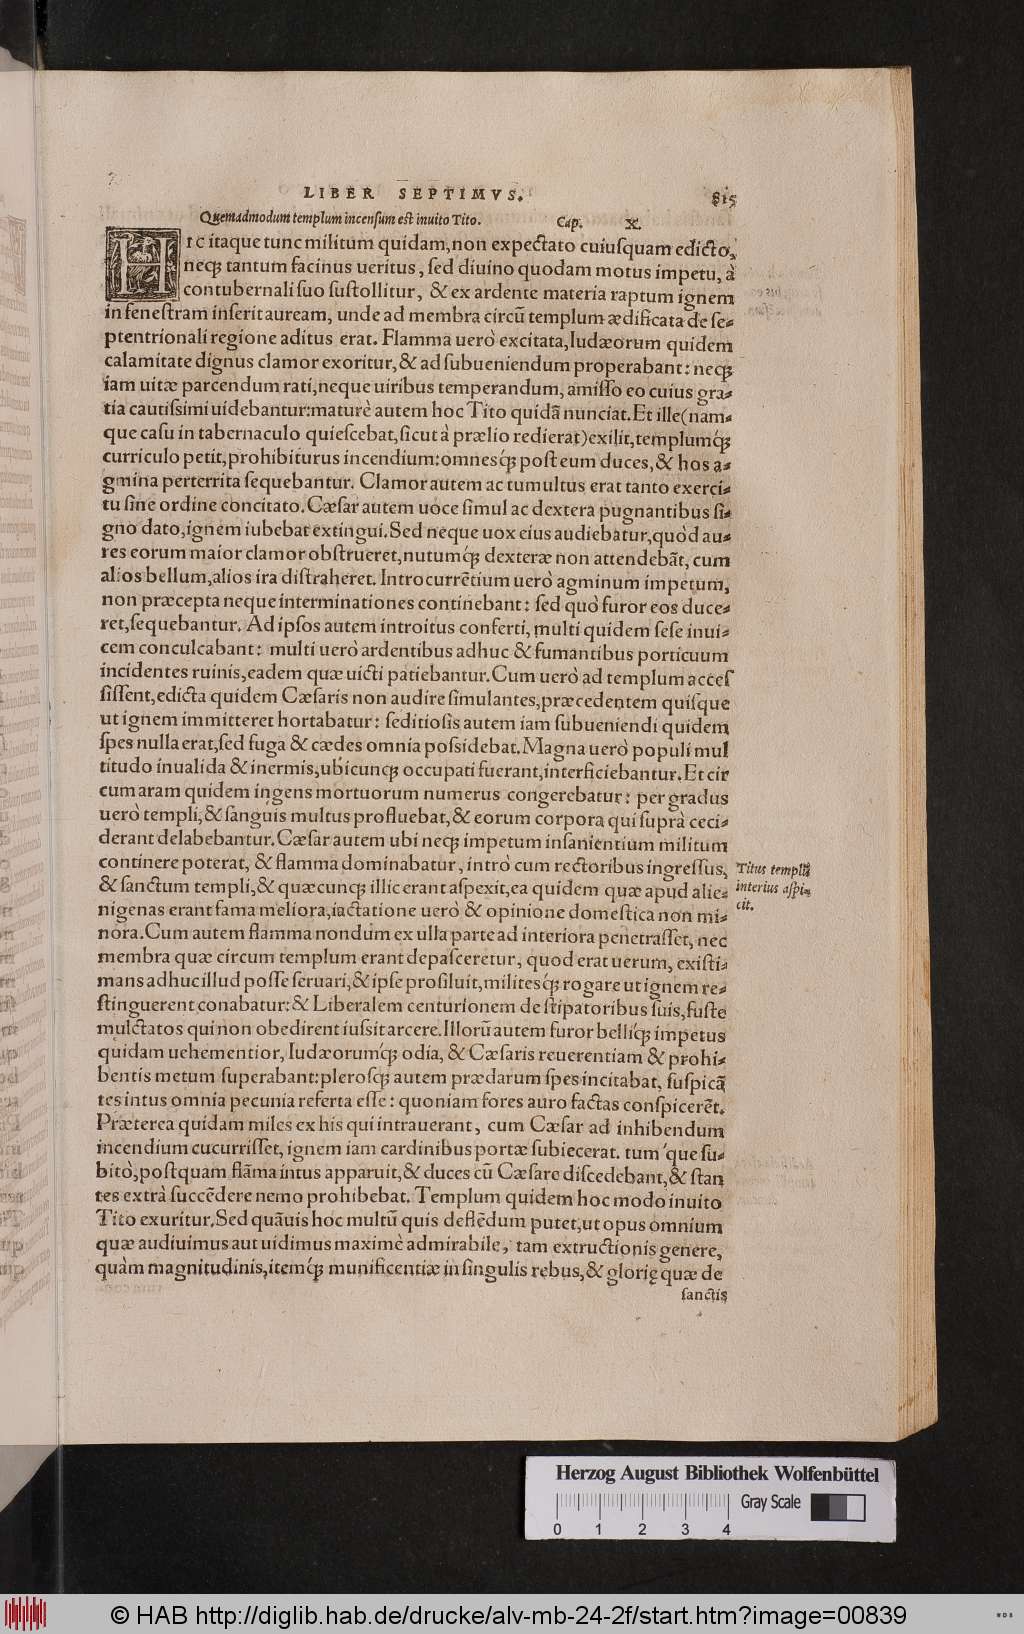 LIBER SEPTIMVS. 815
Quemadmodum templum incensum est inuito Tito. Cap. X.
HIC itaque tunc militum quidam, non expectato cuiusquam edicto,
neq; tantum facinus ueritus, sed diuino quodam motus impetu, à
contubernali suo sustollitur, & ex ardente materia raptum ignem
in fenestram inserit auream, unde ad membra circũ templum ædificata de se-
ptentrionali regione aditus erat. Flamma uerò excitata, Iudæorum quidem
calamitate dignus clamor exoritur, & ad subueniendum properabant: neq;
iam uitæ parcendum rati, neque uiribus temperandum, amisso eo cuius gra-
tia cautissimi uidebantur: maturè autem hoc Tito quidã nunciat. Et ille (nam-
que casu in tabernaculo quiescebat, sicut à prælio redierat) exilit, templumq́;
curriculo petit, prohibiturus incendium: omnesq́; post eum duces, & hos a-
gmina perterrita sequebantur. Clamor autem ac tumultus erat tanto exerci-
tu sine ordine concitato. Cæsar autem uoce simul ac dextera pugnantibus si-
gno dato, ignem iubebat extingui. Sed neque uox eius audiebatur, quòd au-
res eorum maior clamor obstrueret, nutumq́; dexteræ non attendebãt, cum
alios bellum, alios ira distraheret. Introcurrẽtium uerò agminum impetum,
non præcepta neque interminationes continebant: sed quò furor eos duce-
ret, sequebantur. Ad ipsos autem introitus conferti, multi quidem sese inui-
cem conculcabant: multi uerò ardentibus adhuc & fumantibus porticuum
incidentes ruinis, eadem quæ uicti patiebantur. Cum uerò ad templum acces
sissent, edicta quidem Cæsaris non audire simulantes, præcedentem quisque
ut ignem immitteret hortabatur: seditiosis autem iam subueniendi quidem
spes nulla erat, sed fuga & cædes omnia possidebat. Magna uerò populi mul
titudo inualida & inermis, ubicunq; occupati fuerant, interficiebantur. Et cir
cum aram quidem ingens mortuorum numerus congerebatur: per gradus
uerò templi, & sanguis multus profluebat, & eorum corpora qui suprà ceci-
derant delabebantur. Cæsar autem ubi neq; impetum insanientium militum
continere poterat, & flamma dominabatur, intrò cum rectoribus ingressus,
& sanctum templi, & quæcunq; illic erant aspexit, ea quidem quæ apud alie-
nigenas erant fama meliora, iactatione uerò & opinione domestica non mi-
nora. Cum autem flamma nondum ex ulla parte ad interiora penetrasset, nec
membra quæ circum templum erant depasceretur, quod erat uerum, existi-
mans adhuc illud posse seruari, & ipse prosiluit, militesq́; rogare ut ignem re-
stinguerent conabatur: & Liberalem centurionem de stipatoribus suis, fuste
mulctatos qui non obedirent iussit arcere. Illorũ autem furor belliq́; impetus
quidam uehementior, Iudæorumq́; odia, & Cæsaris reuerentiam & prohi-
bentis metum superabant: plerosq; autem prædarum spes incitabat, suspicã
tes intus omnia pecunia referta esse: quoniam fores auro factas conspicerẽt.
Præterea quidam miles ex his qui intrauerant, cum Cæsar ad inhibendum
incendium cucurrisset, ignem iam cardinibus portæ subiecerat. tum´que su-
bitò, postquam flãma intus apparuit, & duces cũ Cæsare discedebant, & stan
tes extrà succẽdere nemo prohibebat. Templum quidem hoc modo inuito
Tito exuritur. Sed quãuis hoc multũ quis deflẽdum putet, ut opus omnium
quæ audiuimus aut uidimus maximè admirabile, tam extructionis genere,
quàm magnitudinis, itemq́; munificentiæ in singulis rebus, & glorię quæ de
sanctis
Titus templi
interius aspi-
cit.
Herzog August Bibliothek Wolfenbüttel
0 1 2 3 4 Gray Scale
© HAB http://diglib.hab.de/drucke/alv-mb-24-2f/start.htm?image=00839